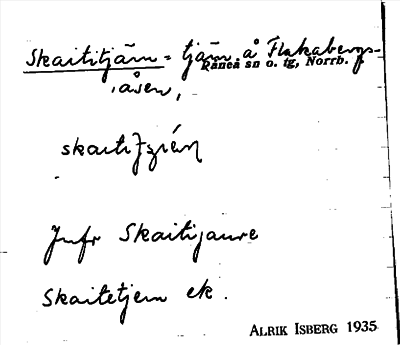 Skaititjärn = tjärn å Flakabergs-
Råneå sn o. tg, Norrb.
åsen,
Jnfr Skaitijaure
Skaitetjern ek.
ALRIK ISBERG 1935